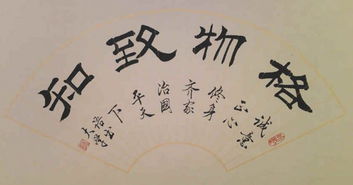 格物致知
诚意
正心
修身
齐家
治國
平天
下